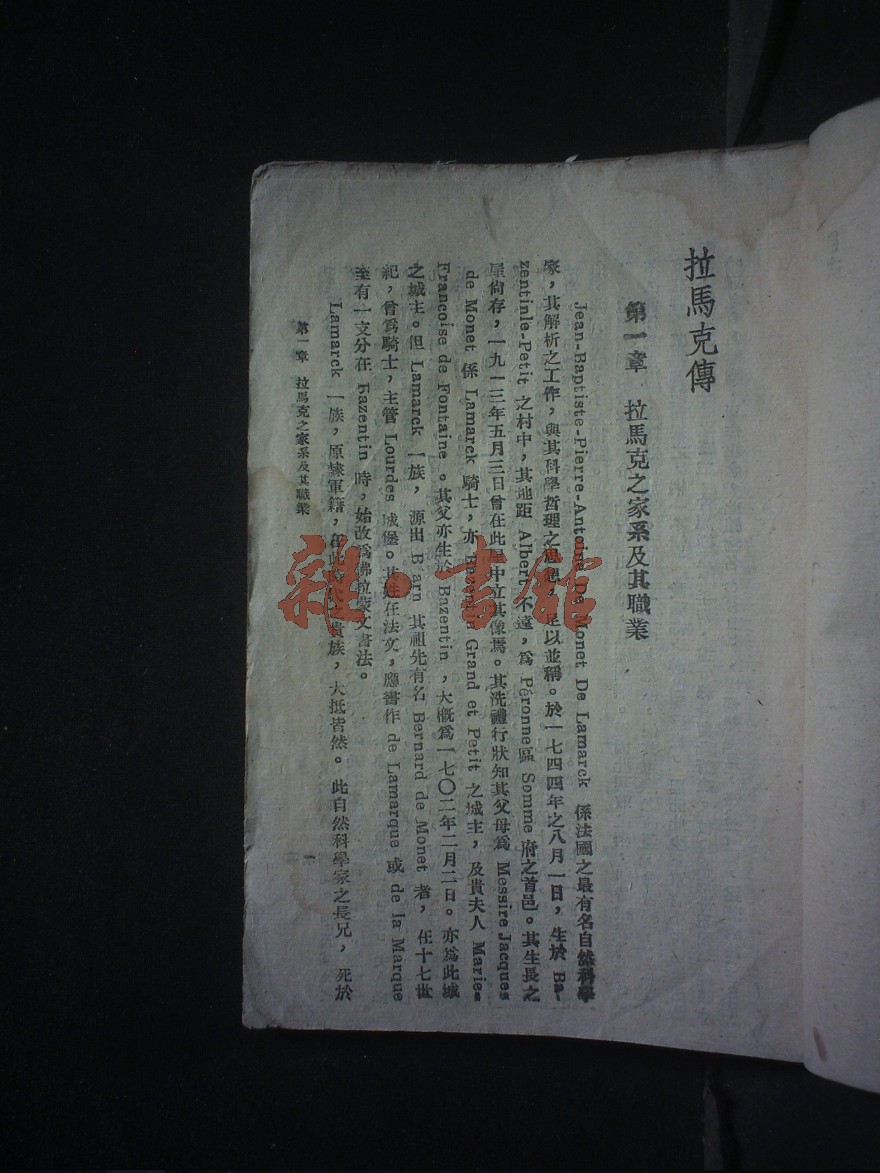 拉馬克傳
第一章 拉馬克之家系及其職業
Jean-Baptiste-Pierre-Antoine De Monet De Lamarck 係法國之最有名自然科學
家，其解析之工作，與其科學哲理之思想，足以並稱。於一七四四年之八月一日，生於 Ba-
zentinle-Petit 之村中，其地距 Albert 不遠，爲 Péronne區 Somme 府之首邑。其生長之
屋尙存，一九一三年五月三日曾在此屋中立其像焉。其洗禮行狀知其父母爲 Messire Jacques
de Monet 係 Lamarck 騎士，亦 Bazentin Grand et Petit 之城主，及貴夫人 Marie-
Francoise de Fontaine 。其父亦生於 Bazentin ，大槪爲一七〇二年二月二日。亦爲此城
之城主。但 Lamarck 一族，源出 B arn 其祖先有名 Bernard de Monet 者，任十七世
紀，曾爲騎士，主管 Lourdes 城堡。其姓在法文，應書作 de Lamarque 或 de la Marque
至有一支分在 Bazentin 時，始改爲佛拉蒙文書法。
Lamarck 一族，原隸軍籍，在此 之貴族，大抵皆然。此自然科學家之長兄，死於
第一章 拉馬克之家系及其職業
一
雜·書館